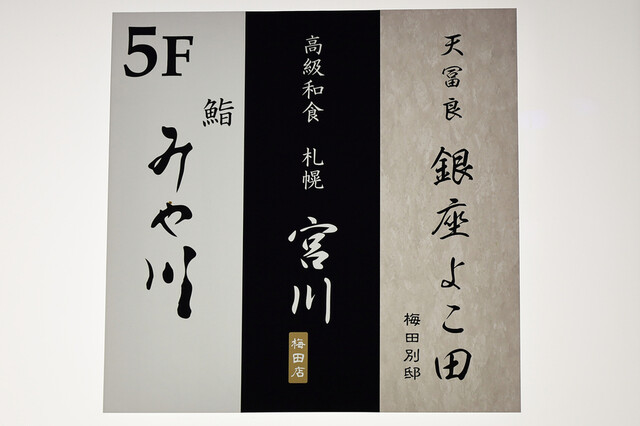 5F
鮨
みや川
高級和食 札幌
宮川
梅田店
天冨良
銀座よこ田
梅田別邸